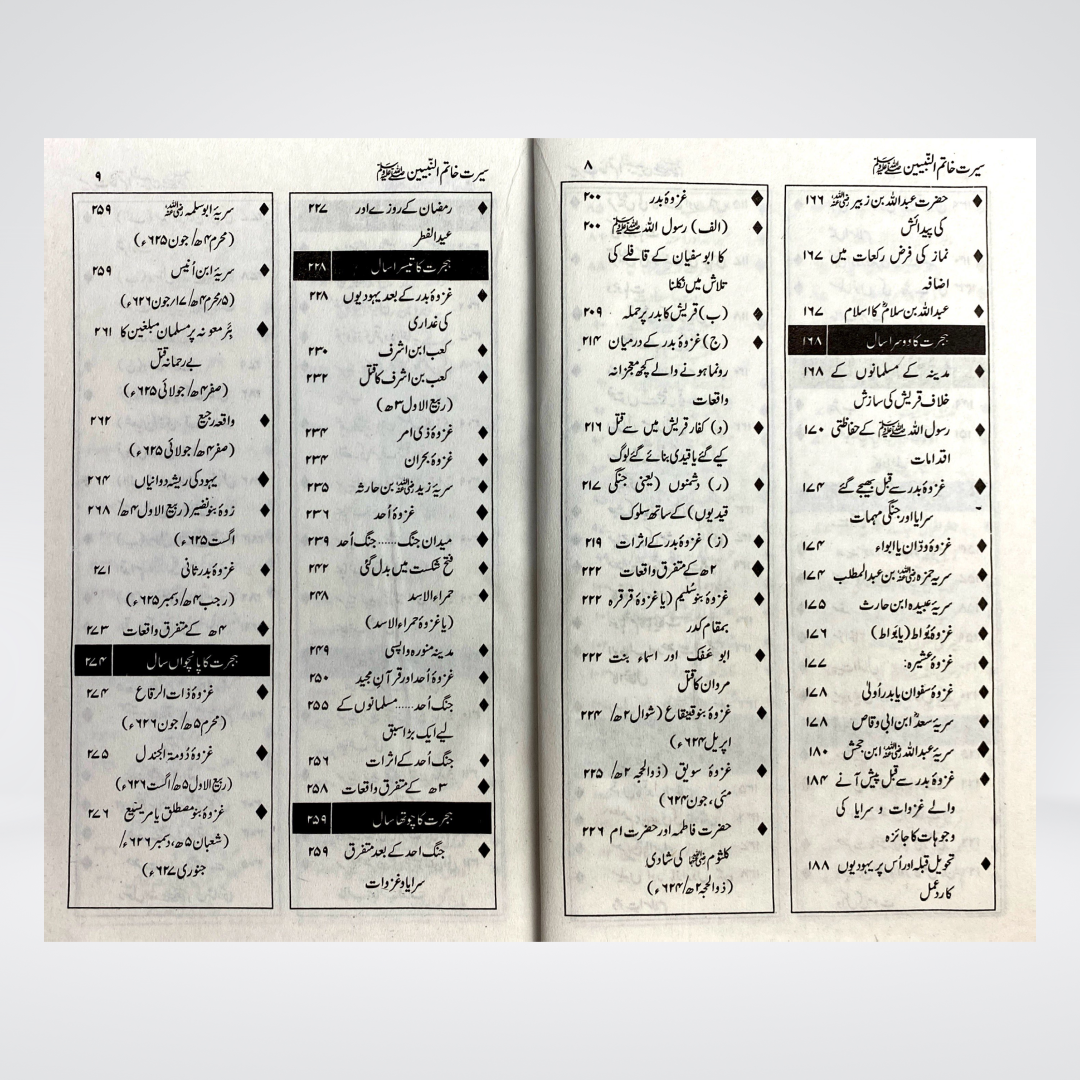 سیرت خاتم النّبیین ﷺ ۸
حضرت عبداللہ بن زبیر رضی اللہ عنہ ۱۶۶
کی پیدائش
نماز کی فرض رکعات میں ۱۶۷
اضافہ
عبداللہ بن سلامؓ کا اسلام ۱۶۷
ہجرت کا دوسرا سال ۱۶۸
مدینہ کے مسلمانوں کے ۱۶۸
خلاف قریش کی سازش
رسول اللہ ﷺ کے حفاظتی ۱۷۰
اقدامات
غزوۂ بدر سے قبل بھیجے گئے ۱۷۴
سرایا اور جنگی مہمات
غزوۂ ودّان یا ابواء ۱۷۴
سریہ حمزہ رضی اللہ عنہ بن عبدالمطلب ۱۷۴
سریہ عبیدہ ابن حارث ۱۷۵
غزوۂ بُواط (یا بَواط) ۱۷۶
غزوۂ عشیرہ: ۱۷۷
غزوۂ سفوان یا بدر اُولیٰ ۱۷۸
سریہ سعدؓ ابن ابی وقاص ۱۷۸
سریہ عبداللہ رضی اللہ عنہ ابن جحش ۱۸۰
غزوہ بدر سے قبل پیش آنے ۱۸۴
والے غزوات و سرایا کی
وجوہات کا جائزہ
تحویل قبلہ اور اُس پر یہودیوں ۱۸۸
کا ردعمل
غزوۂ بدر ۲۰۰
(الف) رسول اللہ ﷺ ۲۰۰
کا ابوسفیان کے قافلے کی
تلاش میں نکلنا
(ب) قریش کا بدر پر حملہ ۲۰۹
(ج) غزوۂ بدر کے درمیان ۲۱۴
رونما ہونے والے کچھ معجزانہ
واقعات
(د) کفار قریش میں سے قتل ۲۱۶
کیے گئے یا قیدی بنائے گئے لوگ
(ر) دشمنوں (یعنی جنگی ۲۱۷
قیدیوں) کے ساتھ سلوک
(ز) غزوۂ بدر کے اثرات ۲۱۹
۲ھ کے متفرق واقعات ۲۲۲
غزوۂ بنو سُلیم (یا غزوۂ قرقرہ ۲۲۲
بمقام کدر
ابو عَفَک اور اسماء بنت ۲۲۲
مروان کا قتل
غزوۂ بنو قینقاع (شوال ۲ھ/ ۲۲۴
اپریل ۶۲۴ء)
غزوۂ سویق (ذوالحجہ ۲ھ/ ۲۲۵
مئی، جون ۶۲۴)
حضرت فاطمہ اور حضرت ام ۲۲۶
کلثوم رضی اللہ عنہا کی شادی
(ذوالحجہ ۲ھ/۶۲۴ء)
سیرت خاتم النّبیین ﷺ ۹
رمضان کے روزے اور ۲۲۷
عید الفطر
ہجرت کا تیسرا سال ۲۲۸
غزوۂ بدر کے بعد یہودیوں ۲۲۸
کی غداری
کعب ابن اشرف ۲۳۰
کعب بن اشرف کا قتل ۲۳۲
(ربیع الاول ۳ھ)
غزوۂ ذی امر ۲۳۴
غزوۂ بحران ۲۳۴
سریۂ زید رضی اللہ عنہ بن حارثہ ۲۳۵
غزوۂ اُحد ۲۳۶
میدان جنگ...... جنگ اُحد ۲۳۹
فتح شکست میں بدل گئی ۲۴۲
حمراء الاسد ۲۴۸
(یا غزوۂ حمراء الاسد)
مدینہ منورہ واپسی ۲۴۹
غزوۂ اُحد اور قرآن مجید ۲۵۰
جنگ اُحد...... مسلمانوں کے ۲۵۵
لیے ایک بڑا سبق
جنگ اُحد کے اثرات ۲۵۶
۳ھ کے متفرق واقعات ۲۵۸
ہجرت کا چوتھا سال ۲۵۹
جنگ احد کے بعد متفرق ۲۵۹
سرایا و غزوات
سریۂ ابوسلمہ رضی اللہ عنہ ۲۵۹
(محرم ۴ھ/ جون ۶۲۵ء)
سریۂ ابن اُنیس ۲۵۹
(۵ محرم ۴ھ/۱۷ جون ۶۲۶ء)
بئرِ معونہ پر مسلمان مبلغین کا ۲۶۱
بے رحمانہ قتل
(صفر ۴ھ/ جولائی ۶۲۵ء)
واقعہ رجیع ۲۶۲
(صفر ۴ھ/ جولائی ۶۲۵ء)
یہود کی ریشہ دوانیاں ۲۶۴
زوۂ بنو نضیر (ربیع الاول ۴ھ/ ۲۶۸
اگست ۶۲۵ء)
غزوۂ بدر ثانی ۲۷۱
(رجب ۴ھ/ دسمبر ۶۲۵ء)
۴ھ کے متفرق واقعات ۲۷۳
ہجرت کا پانچواں سال ۲۷۴
غزوۂ ذات الرقاع ۲۷۴
(محرم ۵ھ/ جون ۶۲۶ء)
غزوۂ دُومۃ الجندل ۲۷۵
(ربیع الاول ۵ھ/ اگست ۶۲۶ء)
غزوۂ بنو مصطلق یا مریسیع ۲۷۶
(شعبان ۵ھ، دسمبر ۶۲۶ء/
جنوری ۶۲۷ء)